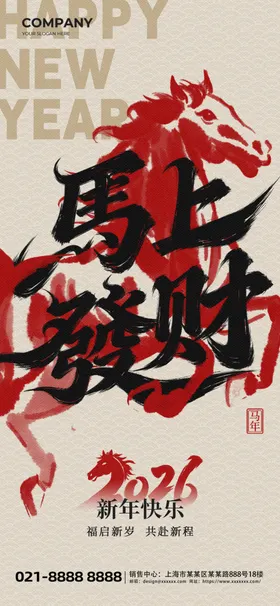 HAPPY
NEW
YEAR
COMPANY
YOUR SLOGAN HERE
馬上
發财
马年
2026
新年快乐
福启新岁 共赴新程
021-8888 8888
销售中心：上海市某某区某某路888号18楼